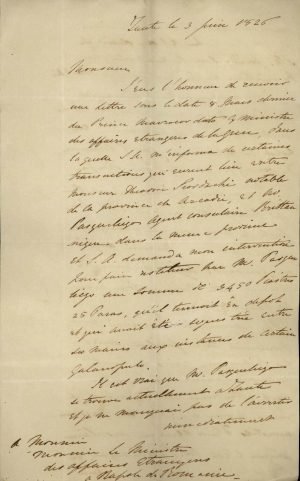 Zante le 3 juin 1826
Monsieur
J'eus l'honneur de recevoir
une lettre sous la date 8 Mars dernier
du Prince Mavrocordato Ministre
des affaires etrangeres de la Grece, dans
laquelle S. A. m'informa de certaines
transactions qui eurent lieu entre
Monsieur notable
de la province de Arcadie, et Mr.
Pasqualigo Agent consulaire Britan
nique dans la meme province
et S. A. demanda mon intervention
pour faire restituer par M. Pasqua
ligo une somme de 2450 Piastres
25 Paras, qu'il
et qui avoit été entre
ses mains aux instances de certain
Galanopulo.
Il est vrai que M. Pasqualigo
se trouve actuellement à Zante
et je ne manquai pas de l'avertir
a Monsieur
Monsieur le Ministre
des affaires Etrangeres
a Napoli de Romanie